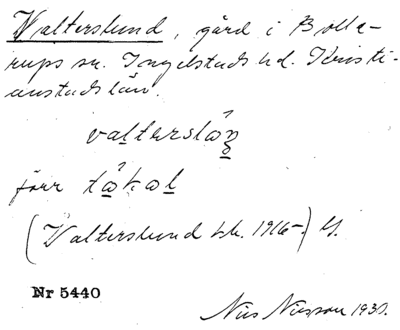 Walterslund, gård i Bolle-
rups sn. Ingelstads hd. Kristi-
anstads län.
valterslån̥
förr tåkal
(Walterslund 1916-)
Nr 5440
Nils Nilsson 1930.